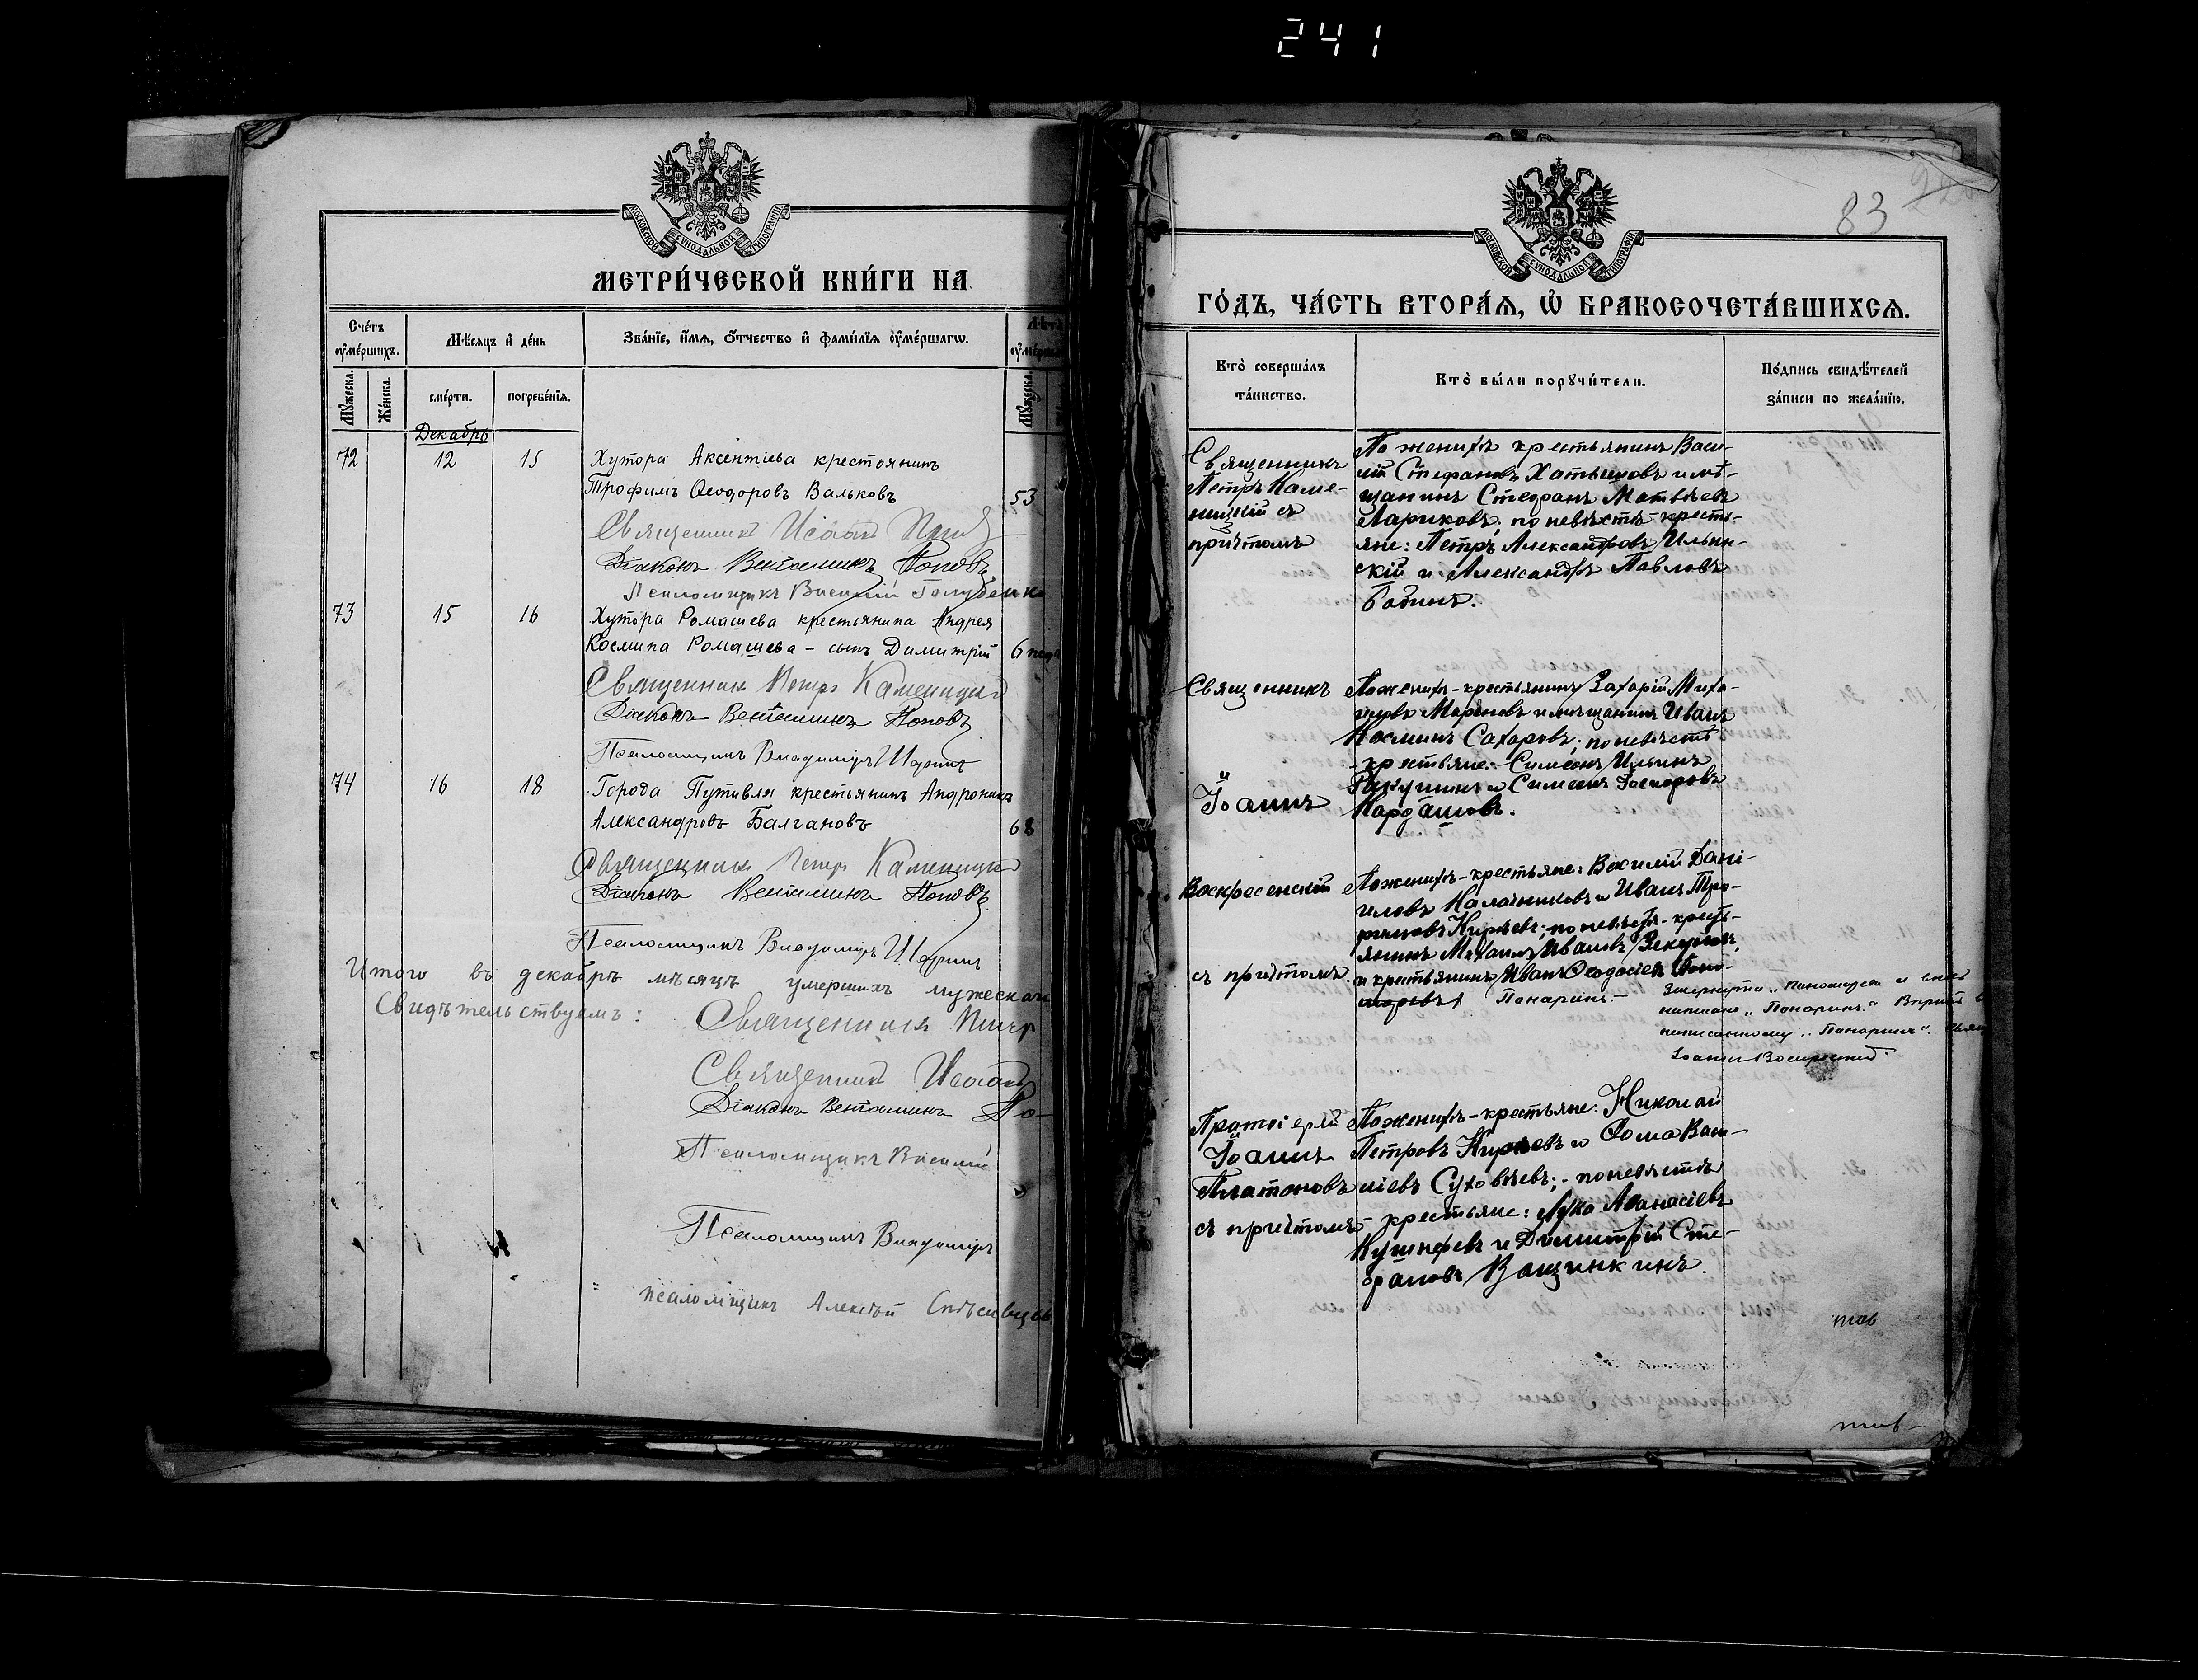 241
83
МОСКОВСКОЙ СѴНОДАЛЬНОЙ ТИПОГРАФІИ
МЕТРИ́ЧЕСКОЙ КНИ́ГИ НА
Сче́тъ оу҆ме́ршихъ.
Мѣ́сяцъ и҆ де́нь
Зва́нїе, и҆́мѧ, ѻ҆́тчество и҆ фами́лїѧ оу҆ме́ршагѡ.
Мꙋ́жеска.
Же́нска.
сме́рти.
погребе́нїѧ.
Мꙋ́жеска.
Декабрь
72 12 15 Хутора Аксентіева крестоянинъ
Трофимъ Ѳеодоровъ Вальковъ 53
Священникъ Исаакъ
Діаконъ Веніаминъ Поповъ
Псаломщикъ Василій Голубенко
73 15 16 Хутора Ромашева крестьянина Андрея
Космина Ромашева - сынъ Димитрій 6 неде
Священникъ Петръ Каменицкій
Діаконъ Веніаминъ Поповъ
Псаломщикъ Владиміръ
74 16 18 Города Путивля крестьянинъ Андроникъ
Александровъ Балгановъ 68
Священникъ Петръ Каменицкій
Діаконъ Веніаминъ Поповъ
Псаломщикъ Владиміръ
Итого въ декабрѣ мѣсяцѣ умершихъ мужеска
Свидѣтельствуемъ: Священникъ Петръ
Священникъ Исаакъ
Діаконъ Веніаминъ По-
Псаломщикъ Василій
Псаломщикъ Владиміръ
псаломщикъ Алексѣй
МОСКОВСКОЙ СѴНОДАЛЬНОЙ ТИПОГРАФІИ
ГО́ДЪ, ЧА́СТЬ ВТОРА́Ѧ, Ѽ БРАКОСОЧЕТА́ВШИХСѦ.
Кто̀ соверша́лъ та́инство.
Кто̀ бы́ли порꙋчи́тели.
По́дпись свидѣ́телей за́писи по жела́нїю.
Священникъ
Петръ Каме-
ницкій съ
причтомъ
По женихѣ крестьянинъ Васи-
лій Стефановъ Хатышовъ и мѣ-
щанинъ Стефанъ Матвѣевъ
Лариковъ; по невѣстѣ - кресть-
яне: Петръ Александровъ Ильин-
скій и Александръ Павловъ
Бабинъ.
Священникъ
Іоаннъ
Воскресенскій
съ причтомъ.
По женихѣ - крестьянинъ Захарій Миха-
иловъ Мареновъ и мѣщанинъ Иванъ
Косминъ Сахаровъ; по невѣстѣ
- крестьяне: Симеонъ Ильинъ
Ракушинъ и Симеонъ
Кардашовъ.
По женихѣ - крестьяне: Василій Дани-
иловъ Калачниковъ и Иванъ Тро-
фимовъ Кирѣевъ; по невѣстѣ - кресть-
янинъ Михаилъ Ивановъ
и крестьянинъ Иванъ Ѳеодосіевъ Поно-
маревъ. Панаринъ. -
Зачеркнуто „Пономарев и
написано „Панаринъ." Вѣрить
написанному „Панаринъ".
Іоаннъ Воскресенскій
Протоіерей
Іоаннъ
Платоновъ
съ причтомъ
По женихѣ - крестьяне: Николай
Петровъ Кирѣевъ и Ѳома Васи-
ліевъ Суховѣевъ; - по невѣстѣ
- крестьяне: Лука Аѳанасіевъ
Кушнеревъ и Димитрій Сте-
фановъ Ващинкинъ.